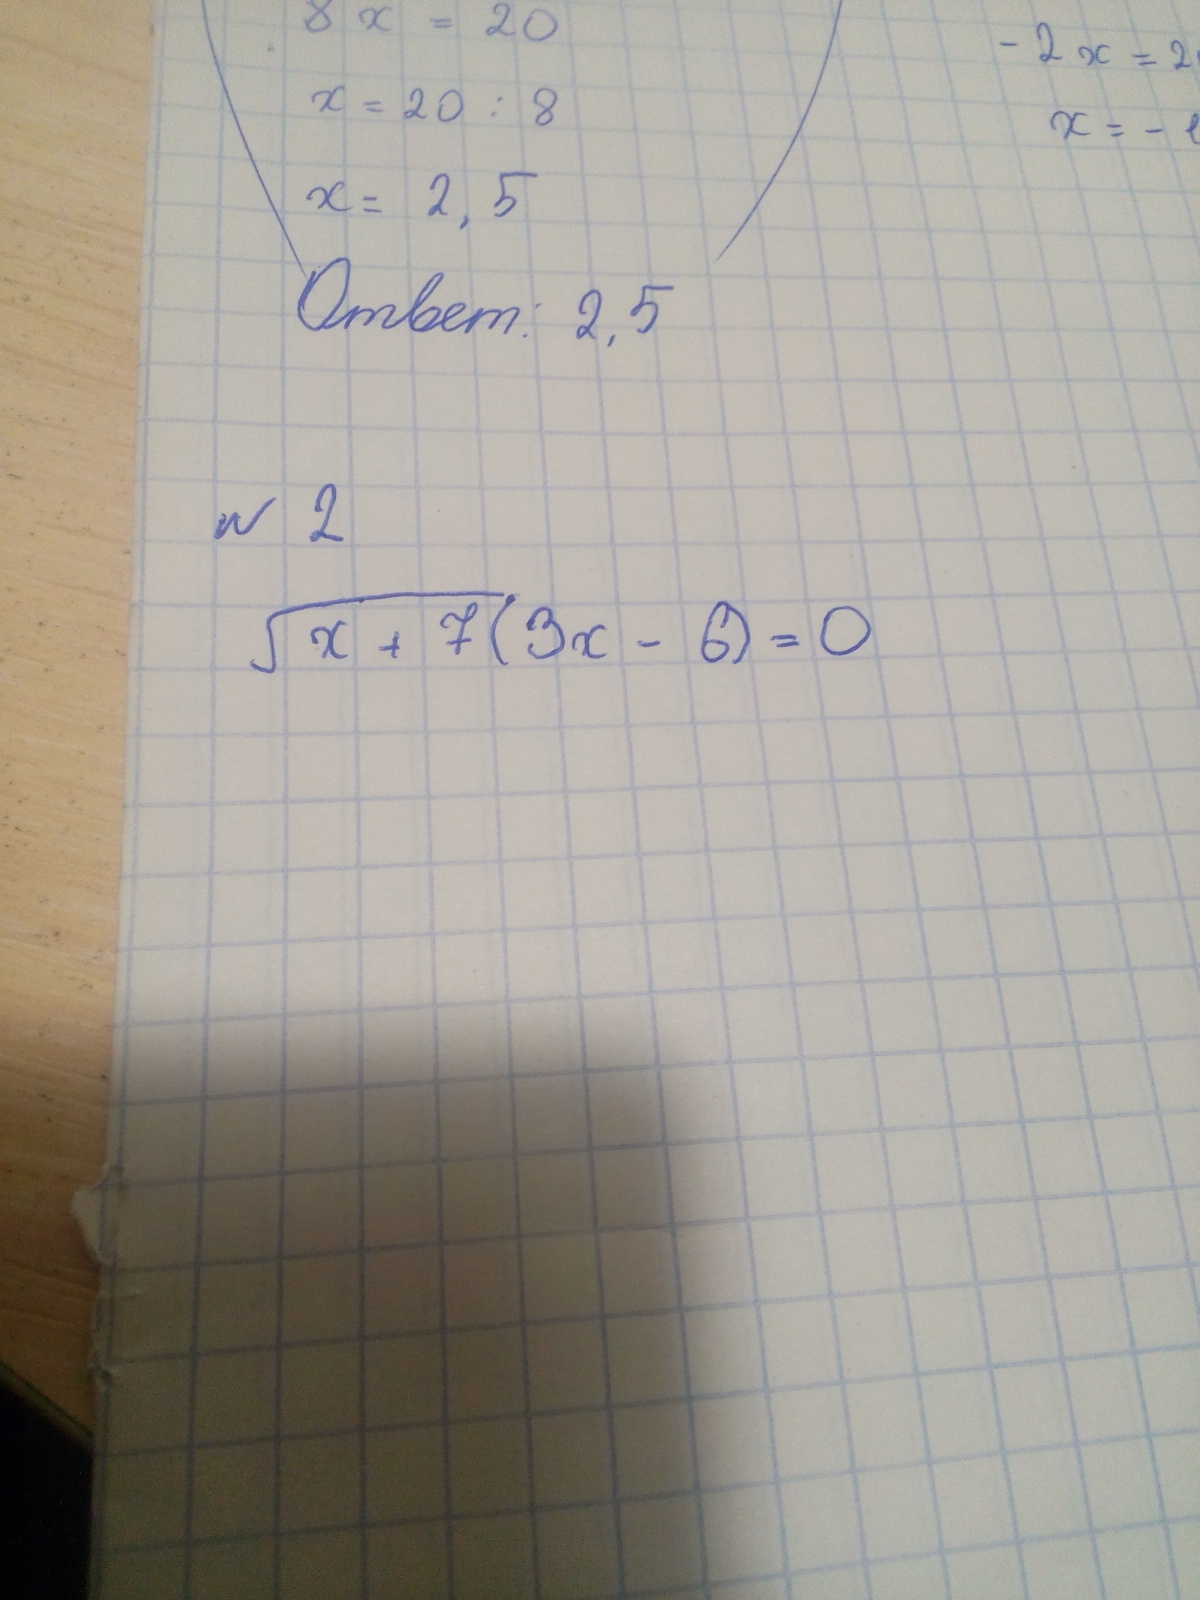 8x = 20
x = 20 : 8
x = 2,5
Ответ: 2,5
-2x = 2
x = -
N 2
√x + 7(3x - 6) = 0